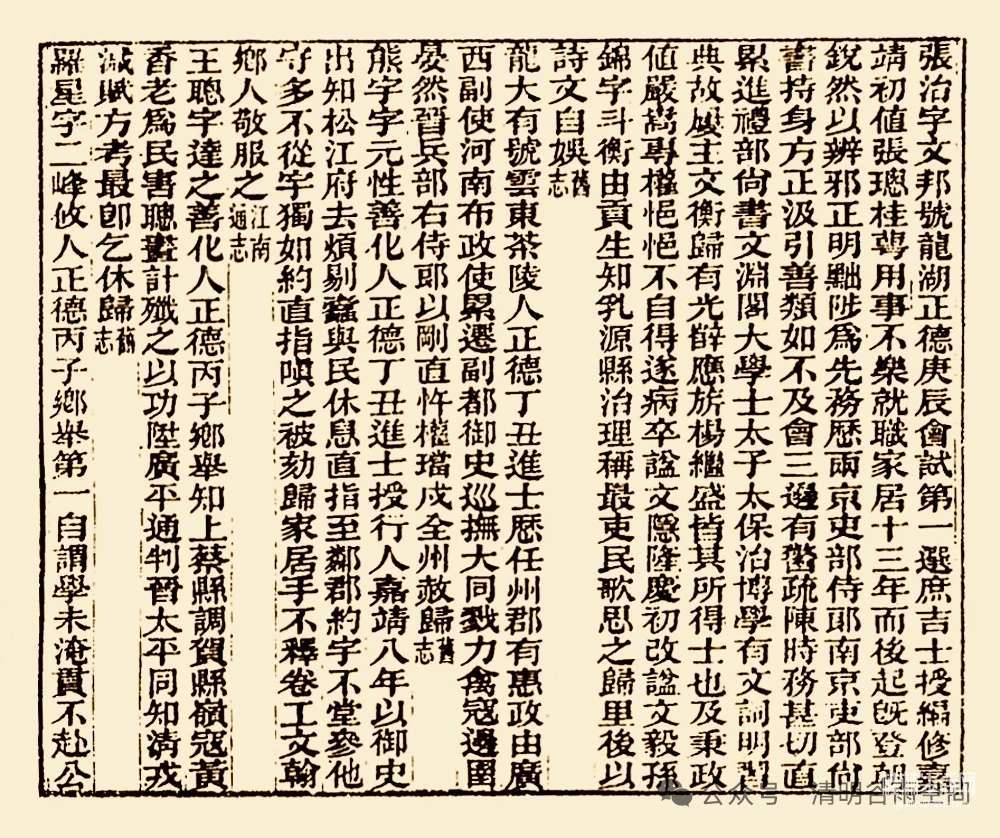 張治字文邦號龍湖正德庚辰會試第一選庶吉士授編修嘉
靖初值張璁桂蕚用事不樂就職家居十三年而後起旣登朝
銳然以辨邪正明黜陟爲先務歷兩京吏部侍郎南京吏部尙
書持身方正汲引善類如不及會三邊有警疏陳時務甚切直
累進禮部尙書文淵閣大學士太子太保治博學有文詞明習
典故屢主文衡歸有光薛應旂楊繼盛皆其所得士也及秉政
値嚴嵩專權悒悒不自得遂病卒諡文隱隆慶初改諡文毅孫
錦字斗衡由貢生知乳源縣治理稱最吏民歌思之歸里後以
詩文自娛舊志
龍大有號雲東茶陵人正德丁丑進士歷任州郡有惠政由廣
西副使河南布政使累遷副都御史巡撫大同戮力禽寇邊圉
晏然晉兵部右侍郎以剛直忤權璫戍全州赦歸舊志
熊宇字元性善化人正德丁丑進士授行人嘉靖八年以御史
出知松江府去煩剔蠹與民休息直指至鄰郡約宇不堂參他
守多不從宇獨如約直指嗔之被劾歸家居手不釋卷工文翰
鄉人敬服之江南通志
王聰字達之善化人正德丙子鄉舉知上蔡縣調賀縣嶺寇黃
香老爲民害聰畫計殲之以功陞廣平通判晉太平同知淸戎
減賦方考最卽乞休歸舊志
羅星字二峰攸人正德丙子鄉舉第一自謂學未淹貫不赴公
公众号·清明谷雨空间